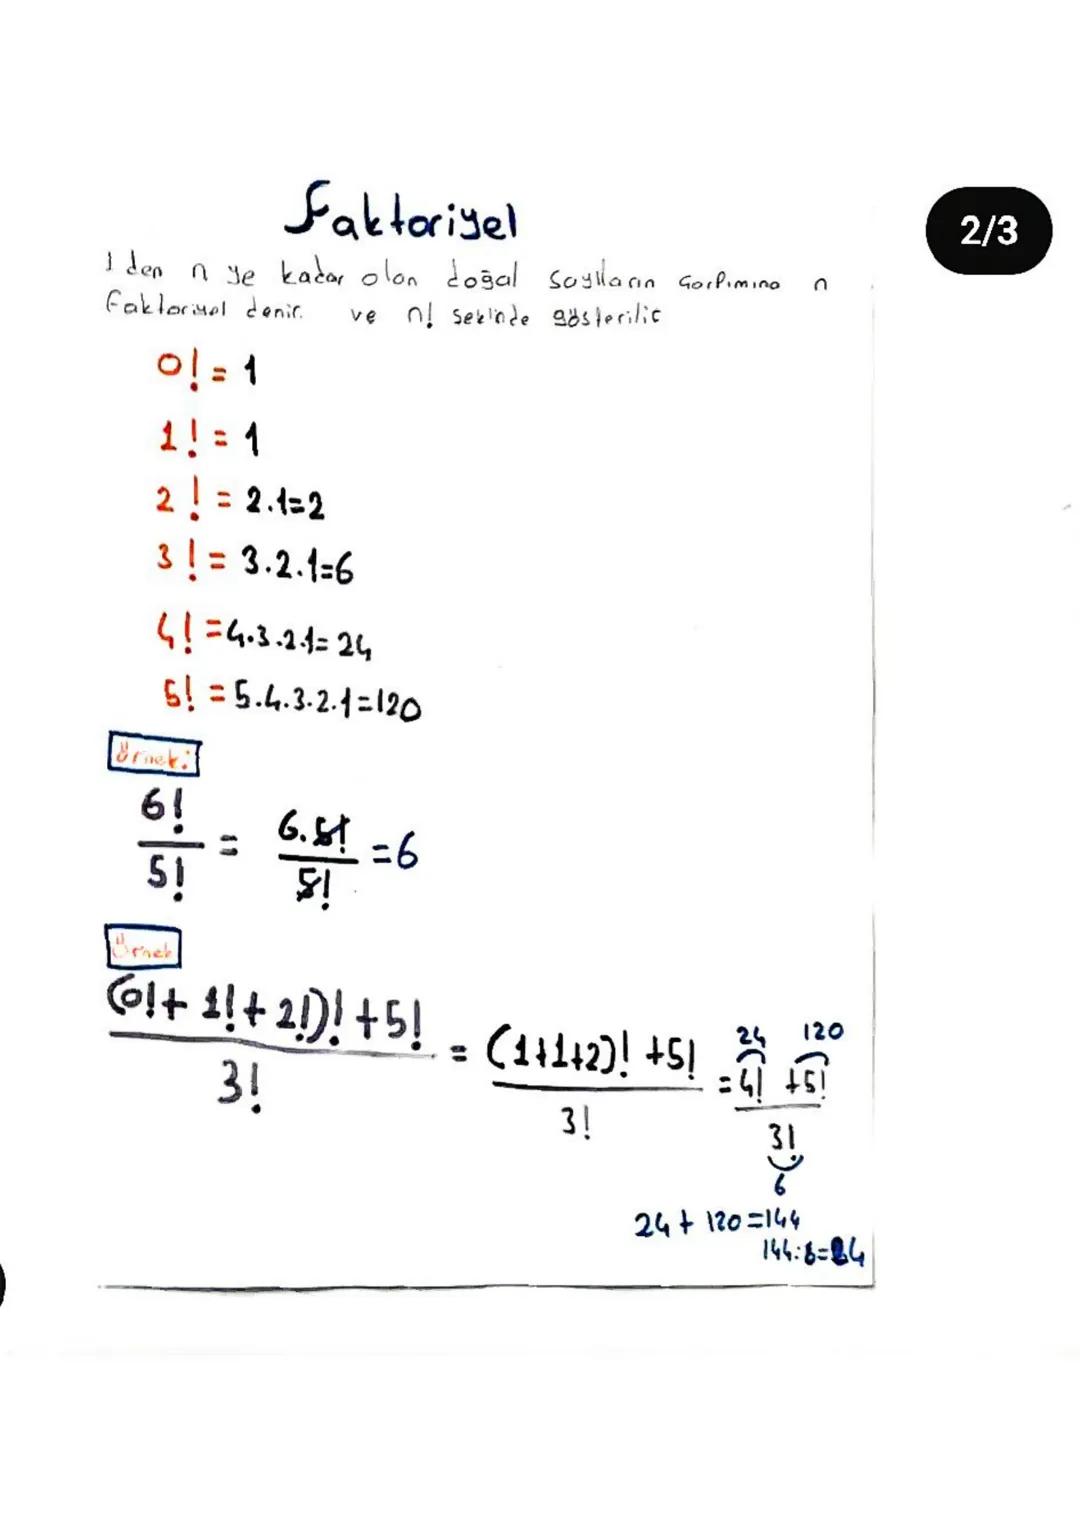 Faktoriyel
2/3
1 den n ye kadar olan doğal sayıların çarpımına n
faktoriyel denir. ve n! şeklinde gösterilir
0! = 1
1! = 1
2! = 2.1=2
3! = 3.2.1=6
4! =4.3.2.1= 24
5! = 5.4.3.2.1=120
Örnek:
6!/5! = 6.5!/5! =6
Örnek
(0!+ 1!+ 2!)! +5!/3! = (1+1+2)! +5!/3! = 4! +5!/3!
24 120
6
24 + 120 =144
144:6=24